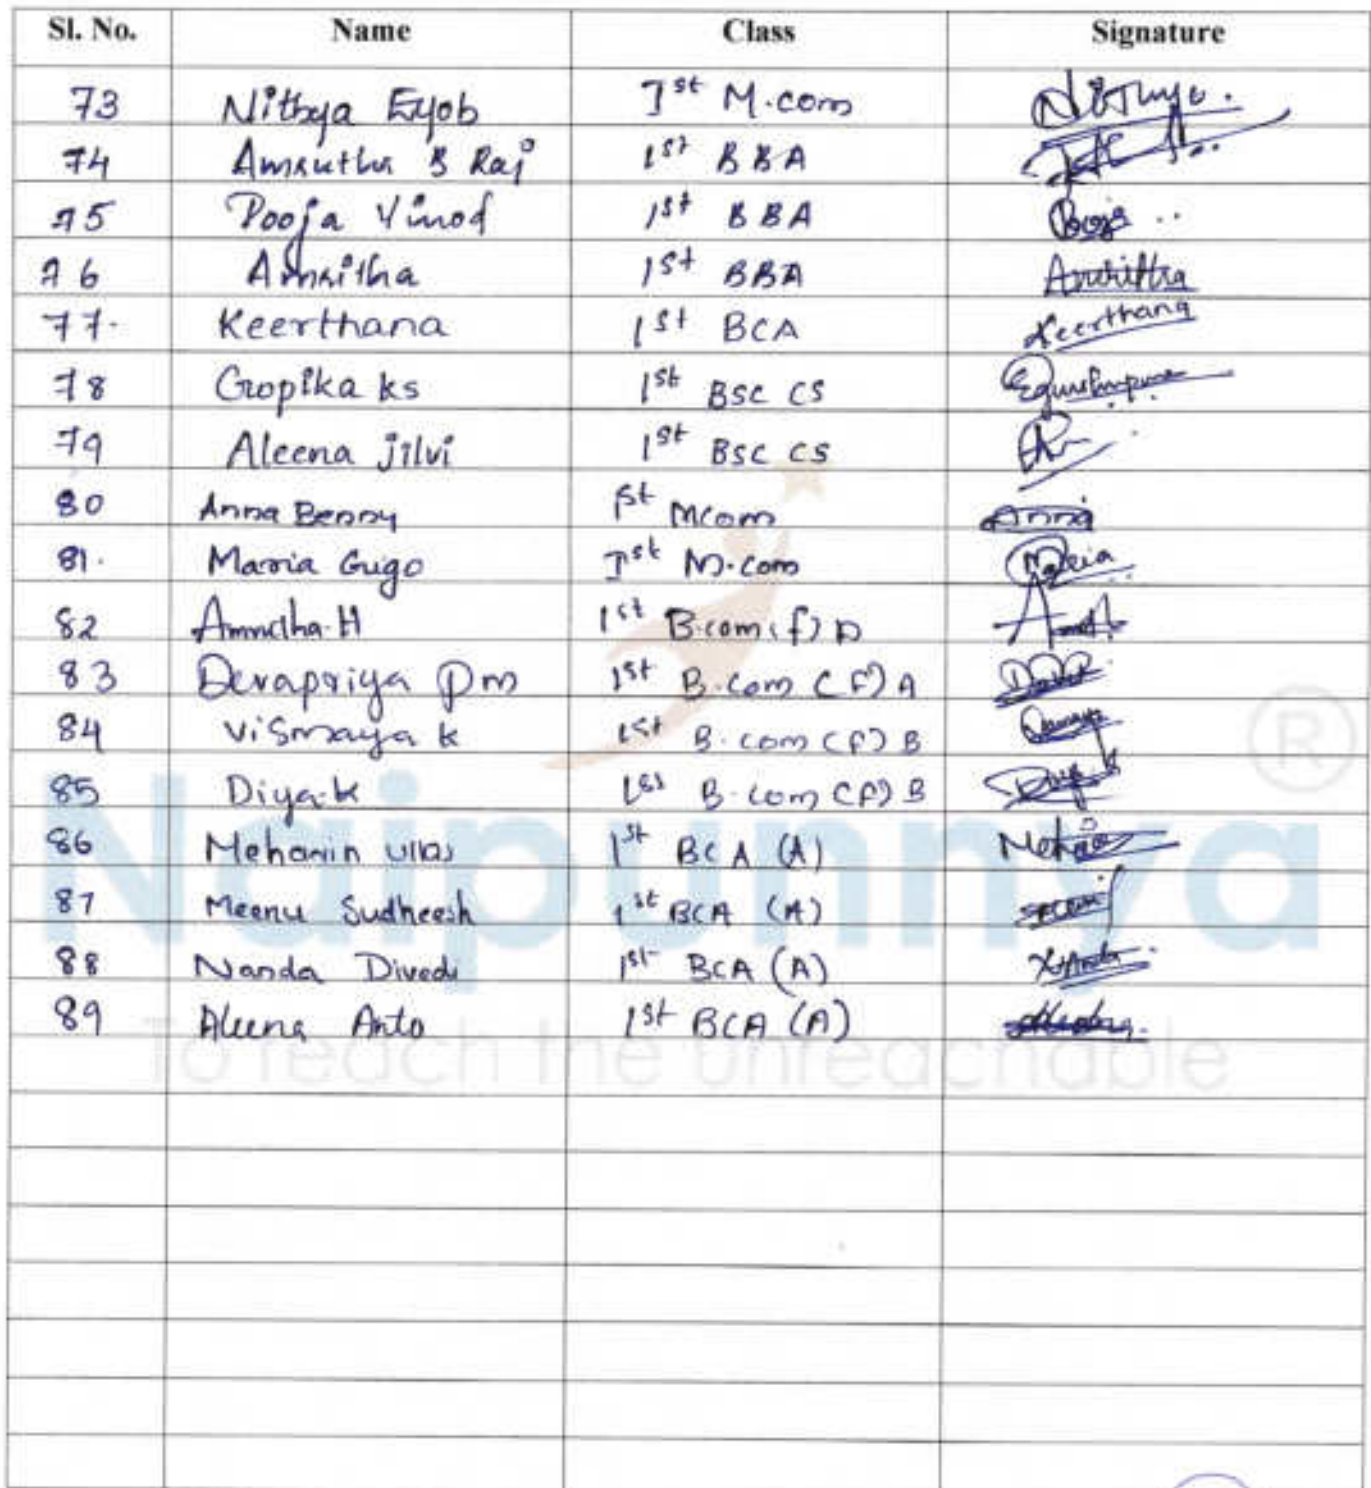 Sl. No. Name Class Signature
73 Nithya Eyob Ist M.com Nithya.
74 Amrutha B Raj 1st BBA
75 Pooja Vinod 1st BBA Pooja
76 Amritha 1st BBA Amritha
77. Keerthana 1st BCA Keerthana
78 Gopika ks 1st BSC CS
79 Aleena jilvi 1st BSC CS
80 Anna Benny Ist Mcom Anna
81. Maria Gigo Ist M.com Maria
82 Amrutha.H 1st B.com(f) D
83 Devapriya Pm 1st B.com (F) A
84 Vismaya k 1st B.com (F) B
85 Diya.k 1st B.com (F) B Diya.k
86 ullas 1st BCA (A)
87 Meenu Sudheesh 1st BCA (A)
88 Nanda Divedi 1st BCA (A) Nanda
89 Aleena Anto 1st BCA (A)
Naipunnya ®
To reach the unreachable